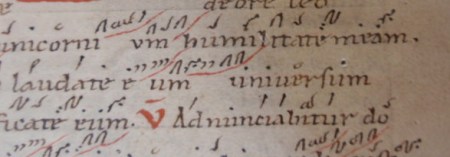 de ore leo
unicorni um humilitatē meam.
laudate e um universum
ficate eum. V̄ Adnunciabitur dō